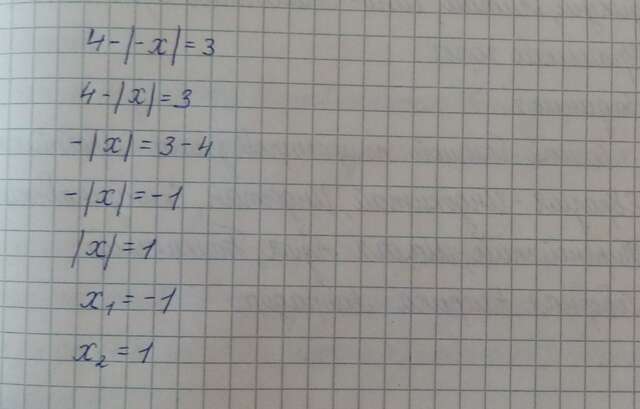 4-|-x|=3
4-|x|=3
-|x|=3-4
-|x|=-1
|x|=1
x₁=-1
x₂=1